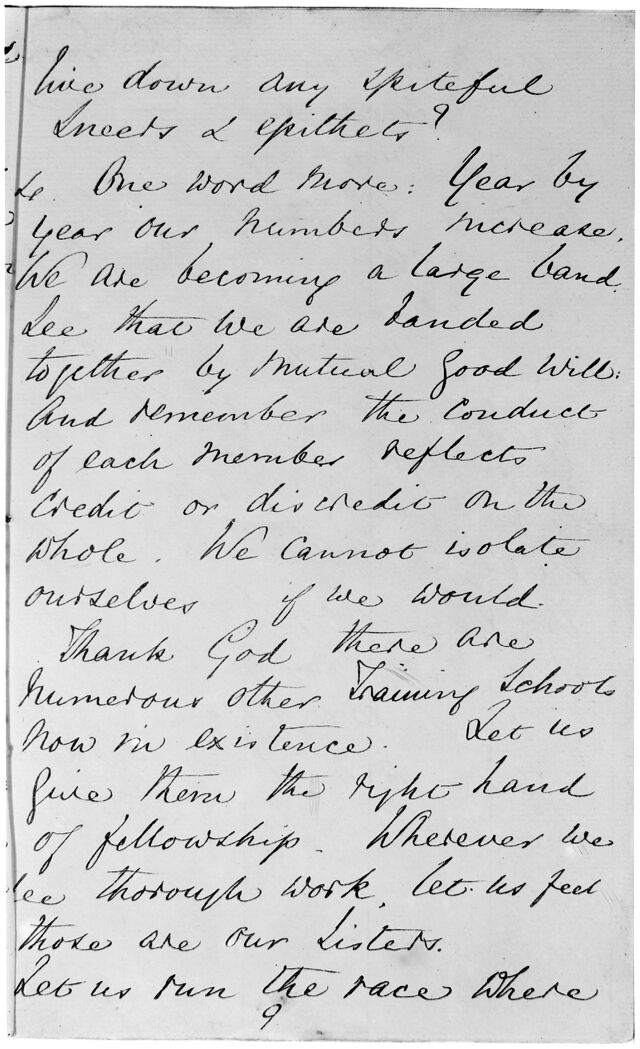 live down any spiteful
sneers & epithets?
One word more: Year by
year our numbers increase.
We are becoming a large band.
See that we are banded
together by mutual good will:
And remember the conduct
of each member reflects
credit or discredit on the
whole. We cannot isolate
ourselves if we would.
Thank God there are
numerous other Training Schools
now in existence. Let us
give them the right hand
of fellowship. Wherever we
see thorough work, let us feel
those are our Sisters.
Let us run the race where
9